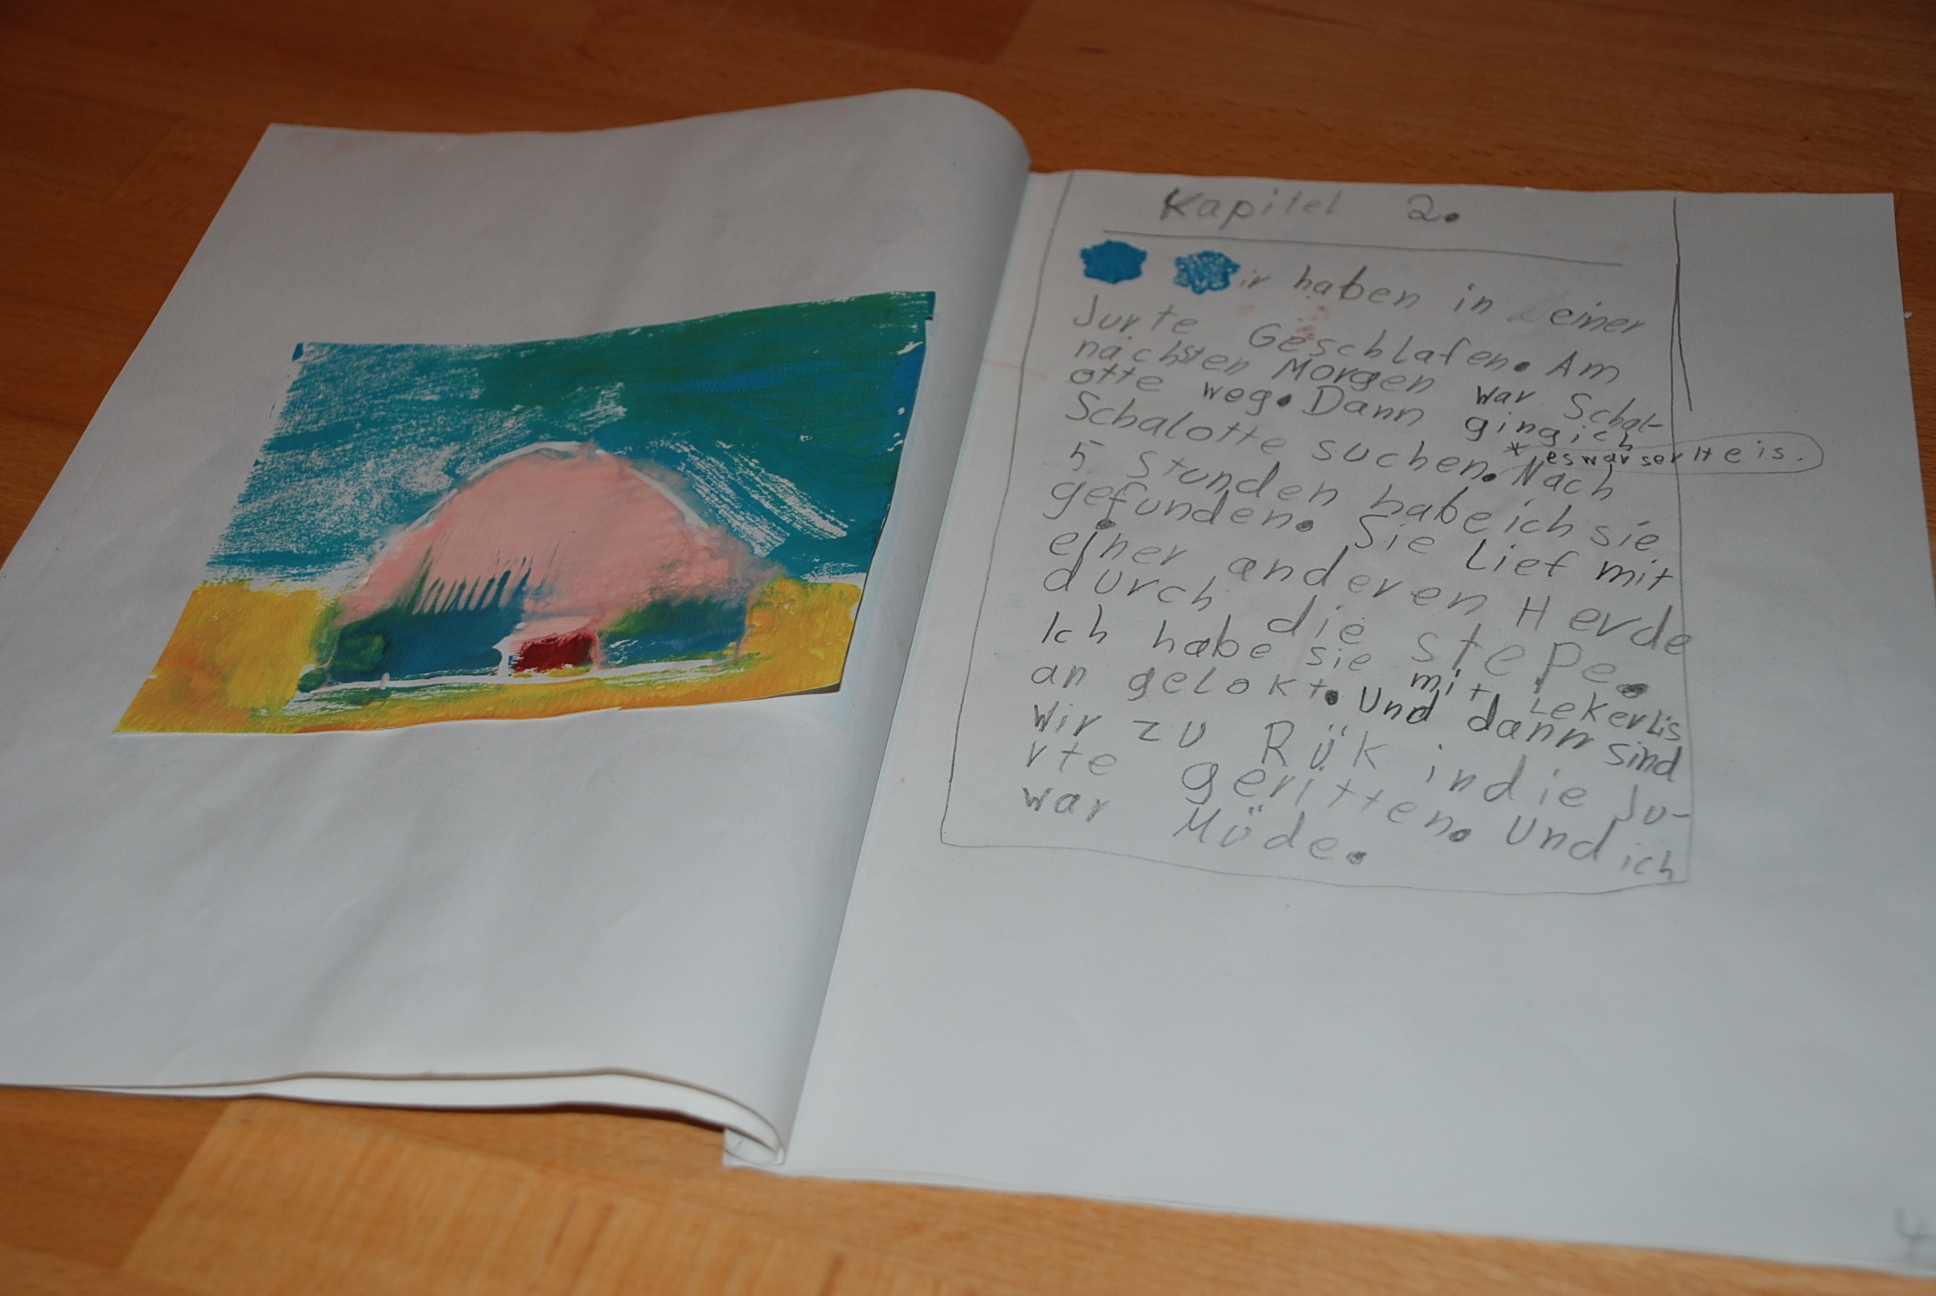 Kapitel 2.
ir haben in einer
Jurte Geschlafen. Am
nächsten Morgen war Schal-
otte weg. Dann ging ich
Schalotte suchen. * Nach
es war ser Heis.
5 Stunden habe ich sie
gefunden. Sie Lief mit
einer anderen Herde
durch die stepe.
Ich habe sie mit Lekerlis
an gelokt. Und dann sind
wir zu Rük in die Ju-
rte geritten. Und ich
war Müde.
4